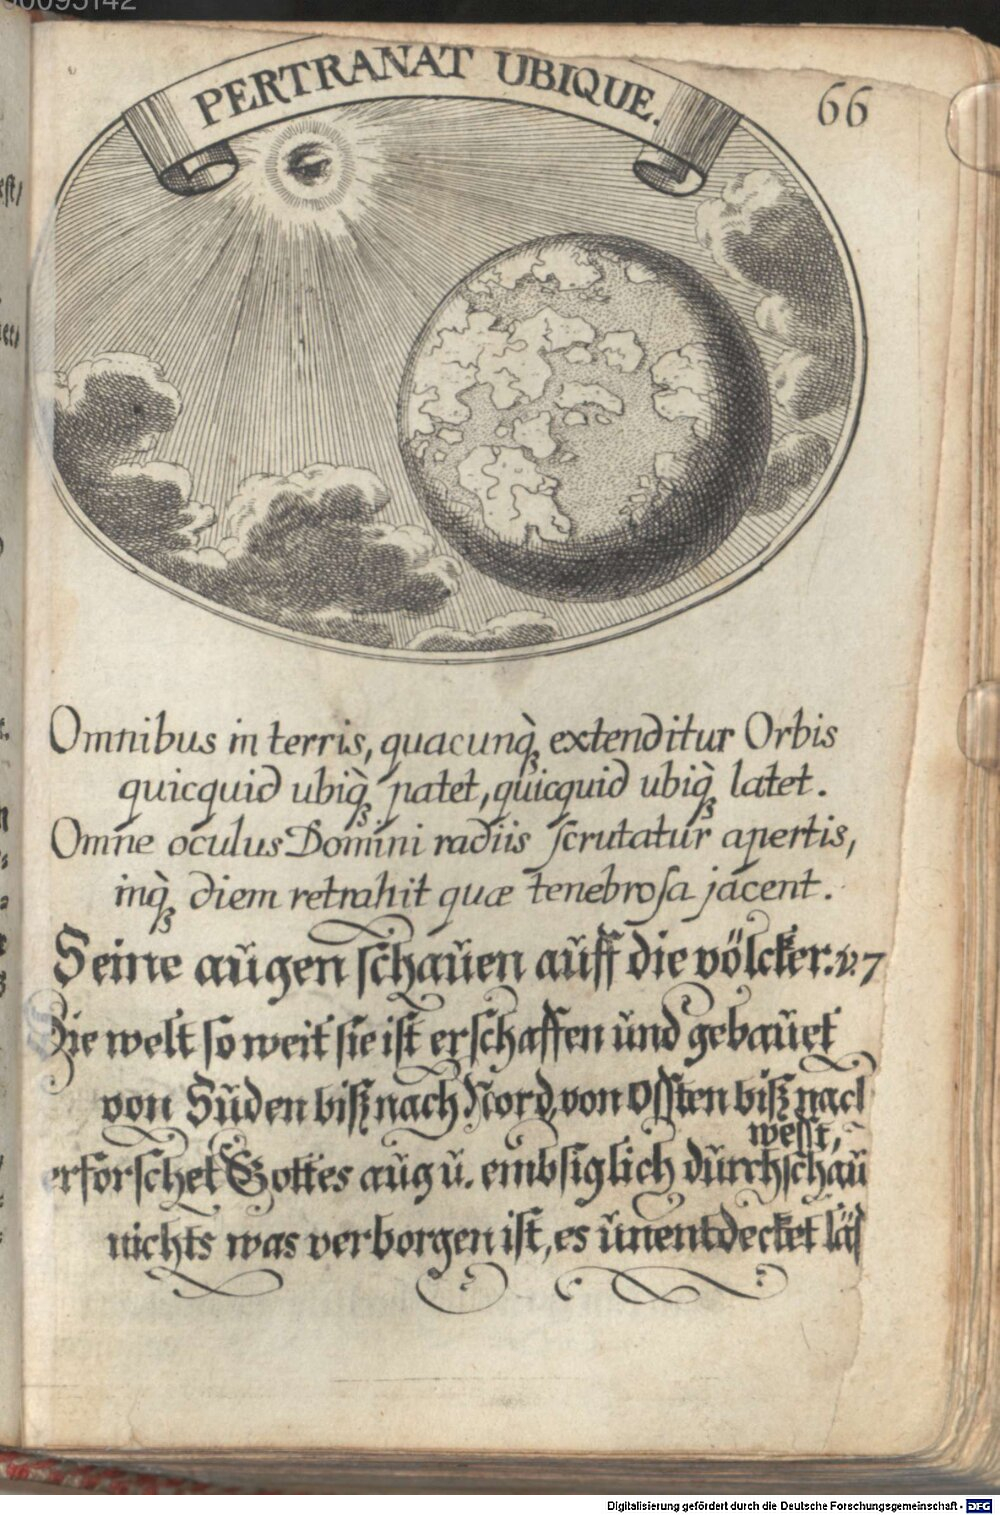 PERTRANAT UBIQUE.
66
Omnibus in terris, quacunq̀ꝫ extenditur Orbis
quicquid ubiq̀ꝫ patet, quicquid ubiq̀ꝫ latet.
Omne oculus Domini radiis ſcrutatur apertis,
inq̀ꝫ diem retrahit quæ tenebroſa jacent.
Seine aŭgen ſchaŭen aŭff die völcker. v. 7
Die welt ſo weit ſie iſt erſchaffen ŭnd gebaŭet
von Sŭden biß nach Nord, von Oſſten biß nach
weſt,
erforſchet Gottes aŭg ŭ. embſiglich dŭrchſchaŭ
nichts was verborgen iſt, es ŭnentdecket läſ
Digitalisierung gefördert durch die Deutsche Forschungsgemeinschaft - DFG